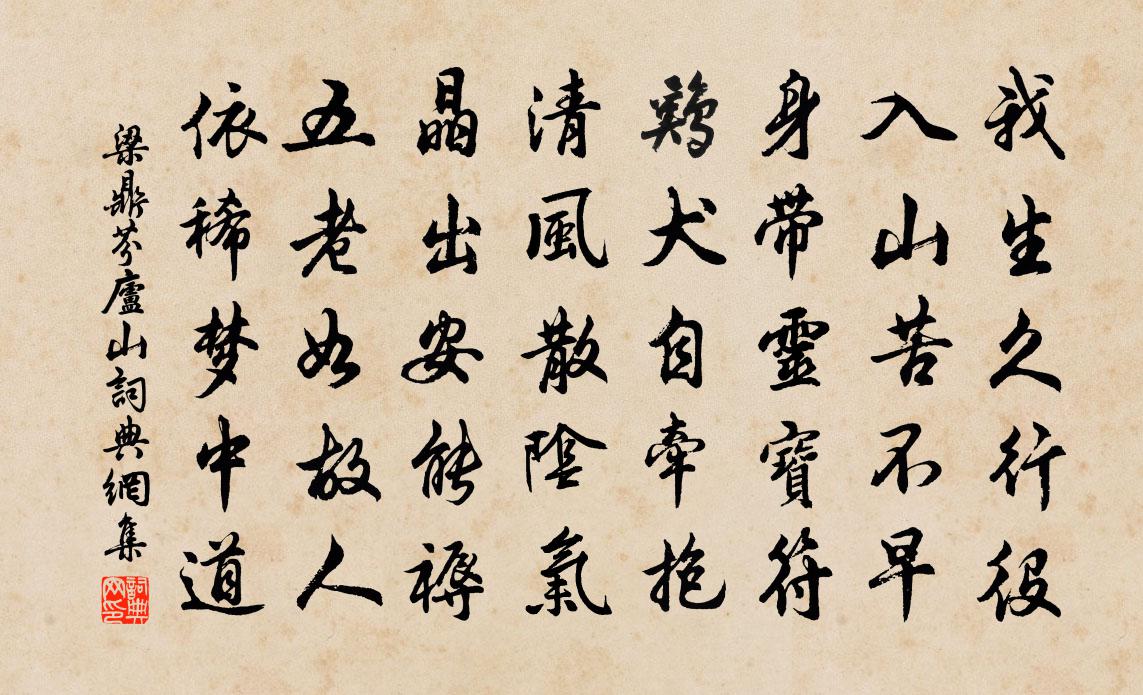 我生久行役
入山苦不早
身带靈寶符
鷄犬自牽抱
清風散陰氣
晶出安能禱
五老如故人
依稀梦中道
梁鼎芬廬山詞典網集
詞典网印